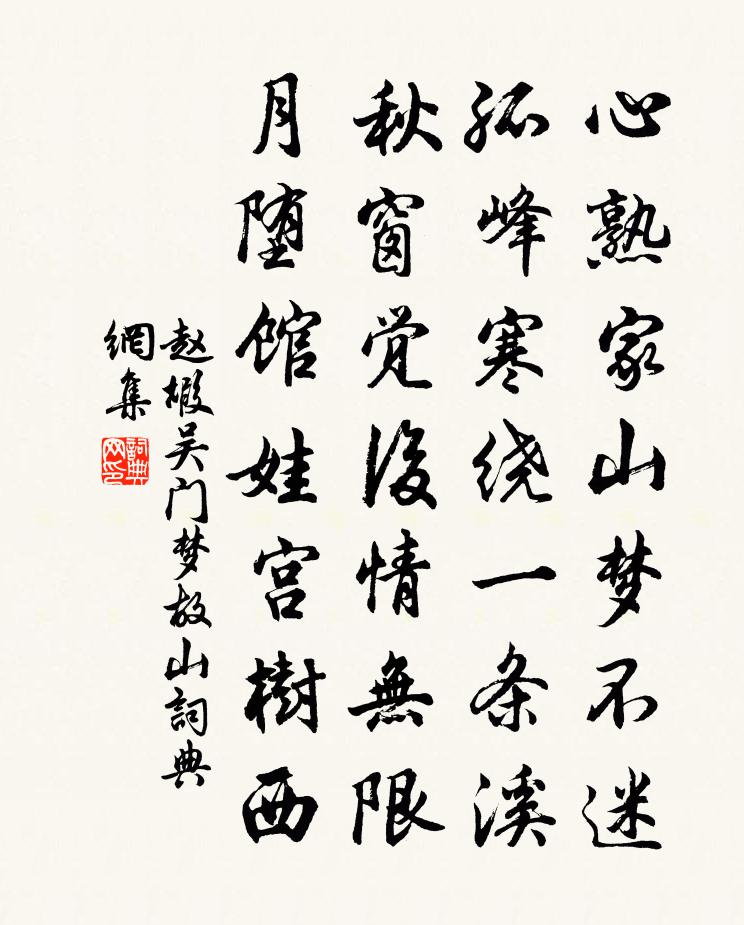 心熟家山梦不迷
孤峰寒绕一条溪
秋窗觉後情無限
月堕馆娃宫樹西
赵嘏吴门梦故山詞典
網集
詞典
网印